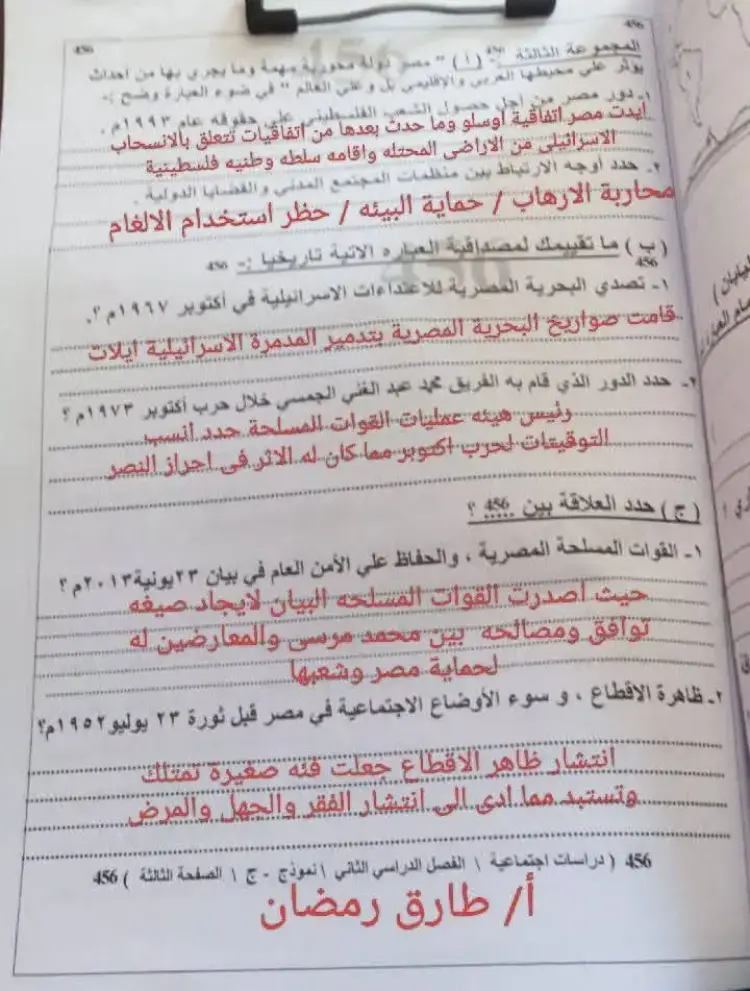 456 456
المجموعة الثالثة :- 456 (أ) " مصر دولة محورية مهمة وما يجري بها من أحداث
يؤثر على محيطها العربي والإقليمي بل وعلي العالم " في ضوء العبارة وضح :-
١- دور مصر من أجل حصول الشعب الفلسطيني علي حقوقه عام ١٩٩٣م .
ايدت مصر اتفاقية أوسلو وما حدث بعدها من اتفاقيات تتعلق بالانسحاب
الاسرائيلى من الاراضى المحتله واقامه سلطه وطنيه فلسطينية
٢- حدد أوجه الارتباط بين منظمات المجتمع المدني والقضايا الدولية .
محاربة الارهاب / حماية البيئه / حظر استخدام الالغام
(ب) ما تقييمك لمصداقية العباره الاتية تاريخيا :- 456
456
١- تصدي البحرية المصرية للاعتداءات الاسرائيلية في أكتوبر ١٩٦٧م ؟.
قامت صواريخ البحرية المصرية بتدمير المدمرة الاسرائيلية ايلات
٢- حدد الدور الذي قام به الفريق محمد عبد الغني الجمسي خلال حرب أكتوبر ١٩٧٣م ؟
رئيس هيئه عمليات القوات المسلحة حدد انسب
التوقيتات لحرب اكتوبر مما كان له الاثر فى احراز النصر
(ج) حدد العلاقة بين 456 ؟
١- القوات المسلحة المصرية ، والحفاظ علي الأمن العام في بيان ٢٣يونية٢٠١٣م ؟
حيث اصدرت القوات المسلحه البيان لايجاد صيغه
توافق ومصالحه بين محمد مرسى والمعارضين له
لحماية مصر وشعبها
٢- ظاهرة الاقطاع ، و سوء الأوضاع الاجتماعية في مصر قبل ثورة ٢٣ يوليو١٩٥٢م؟
انتشار ظاهر الاقطاع جعلت فئه صغيرة تمتلك
وتستبد مما ادى الى انتشار الفقر والجهل والمرض
456 ( دراسات اجتماعية \ الفصل الدراسي الثاني \ نموذج - ج \ الصفحة الثالثة ) 456
أ/ طارق رمضان